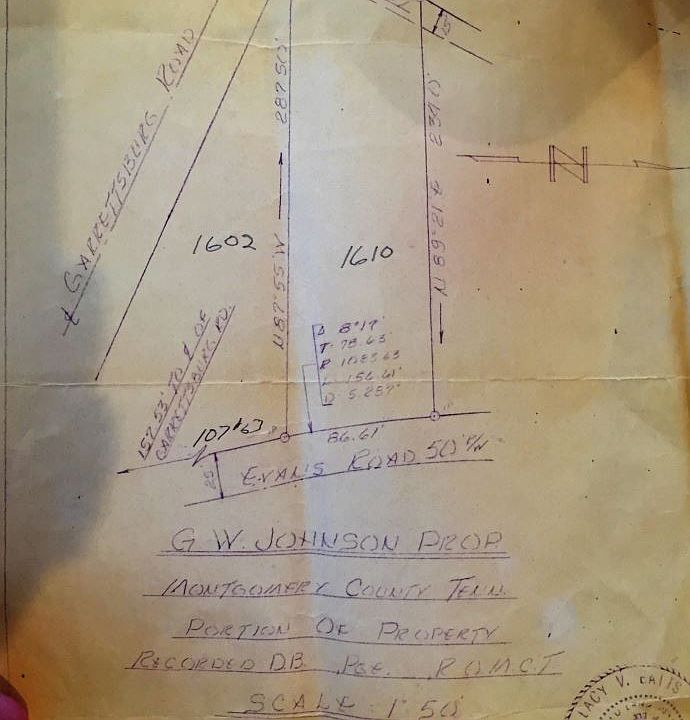 15'
GARRETTSBURG ROAD
287.50'
234.0'
N
1602
1610
N 87°-55' W
Δ 8°17'
T. 78.63
R 1083.63
L. 156.61'
D. 5.287°
157.53' TO ℄ OF
GARRETTSBURG RD.
107.63
86.61'
25'
EVANS ROAD 50' R/W
G. W. JOHNSON PROP.
MONTGOMERY COUNTY TENN.
PORTION OF PROPERTY
RECORDED D.B. PGE. R.O.M.C.T.
SCALE 1" 50'
LACY V.